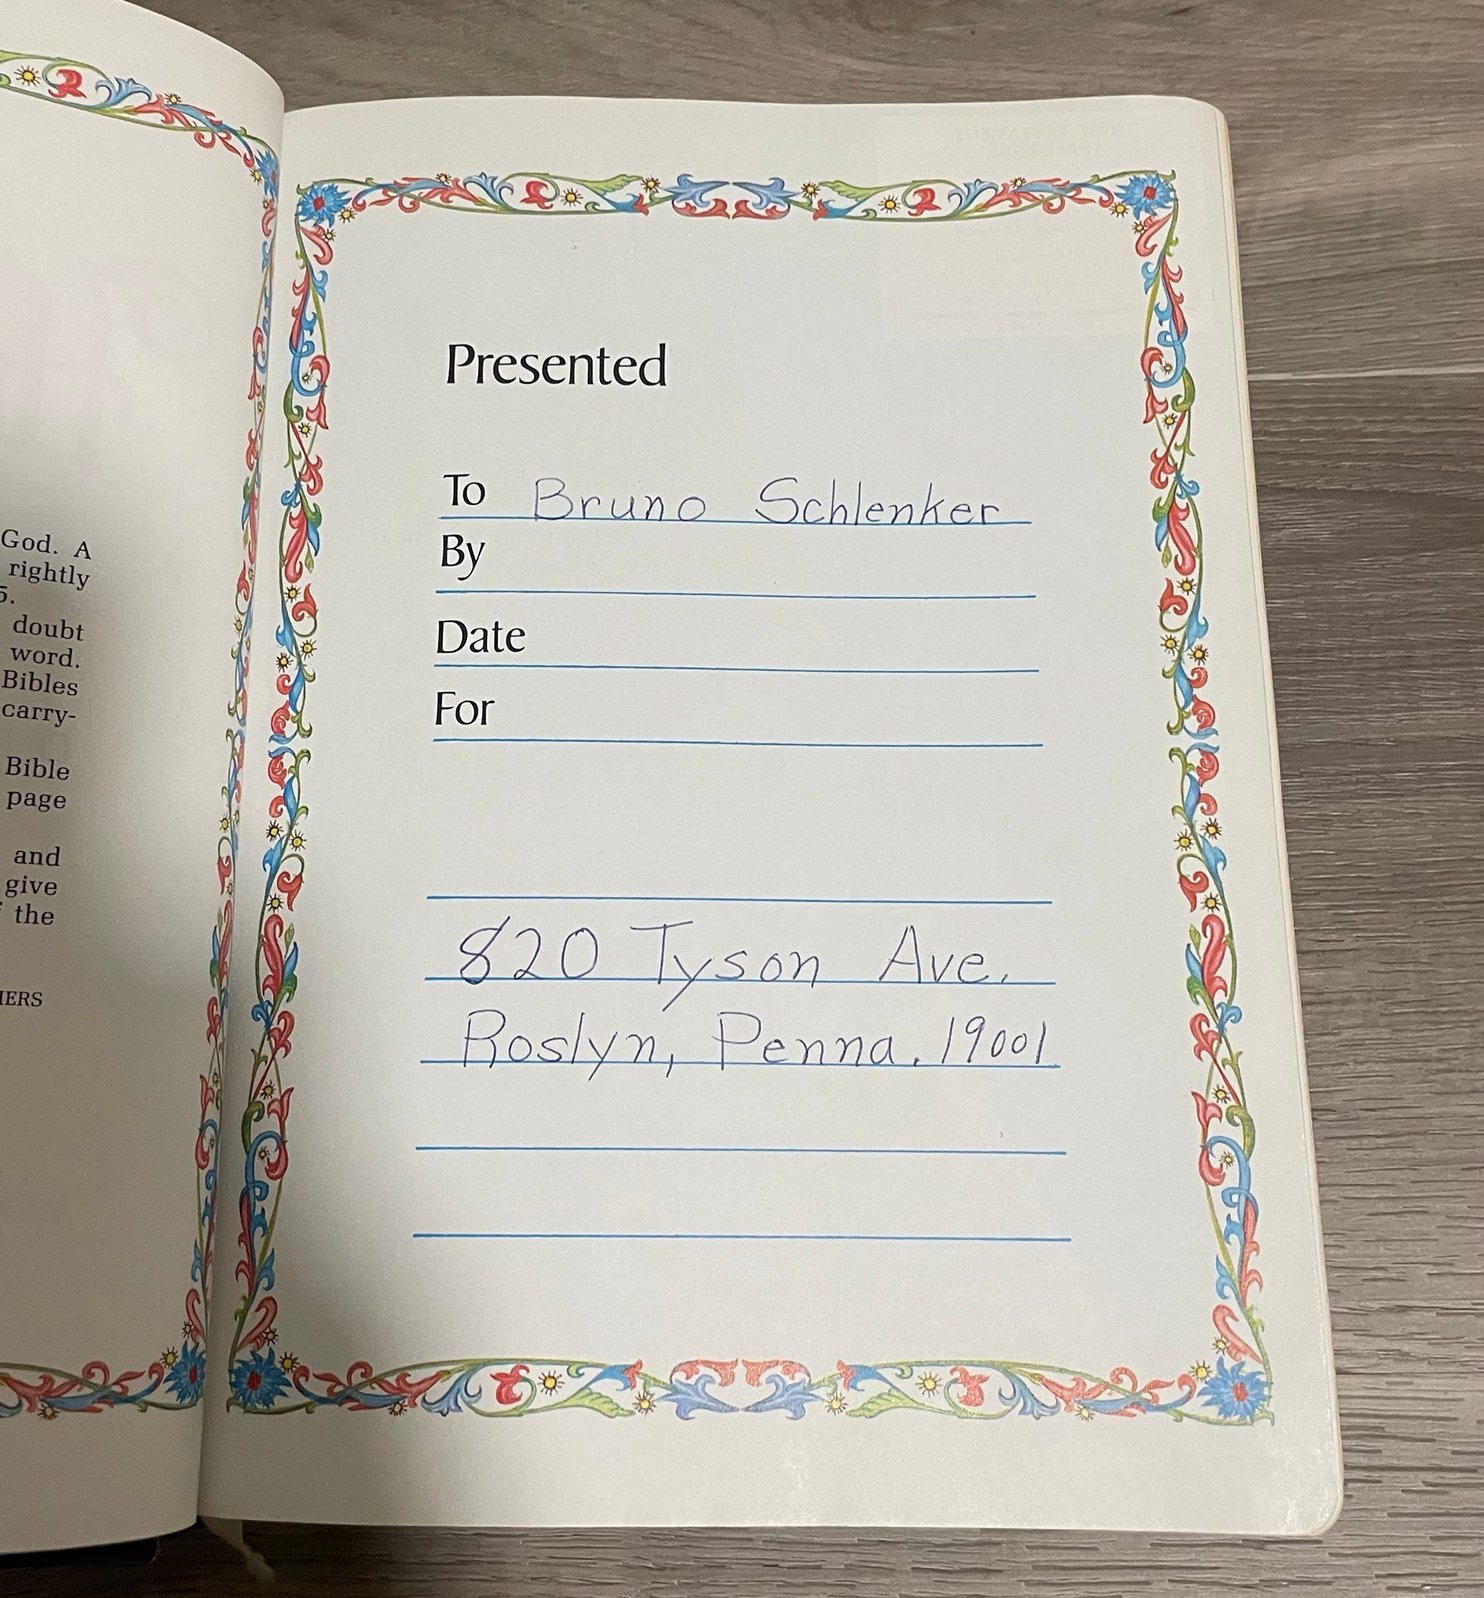 God. A
rightly
5.
doubt
word.
Bibles
carry-
Bible
page
and
give
the
Presented
To Bruno Schlenker
By
Date
For
820 Tyson Ave.
Roslyn, Penna. 19001